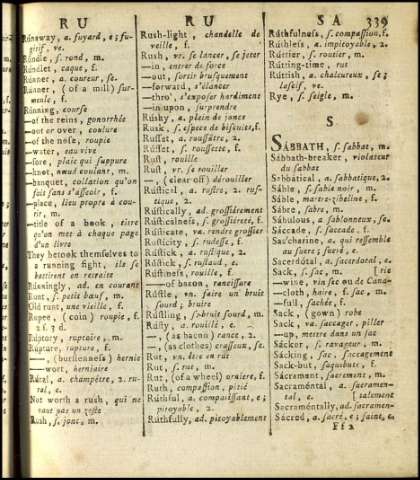 RU
Rúnaway, a. fuyard, e; fu-
gitif, ve.
Rúndle, s. rond, m.
Rúndlet, caque, f.
Rúnner, a. coureur, se.
Rúnner, (of a mill) sur-
meule, f.
Rúnning, course
—of the reins, gonorrhée
—out or over, coulure
—of the nose, roupie
—water, eau vive
—sore, plaie qui suppure
—knot, nœud coulant, m.
—banquet, collation qu'on
fait sans s'asseoir, f.
—place, lieu propre à cou-
rir, m.
—title of a book, titre
qu'on met à chaque page
d'un livre
They betook themselves to
a running fight, ils se
battirent en retraite
Rúnningly, ad. en courant
Runt, s. petit bœuf, m.
Old runt, une vieille, f.
Rupee, (coin) roupie, f.
2 f. 3 d.
Rúptory, ruptoire, m.
Rupture, rupture, f.
— (burstenness) hernie
—wort, herniaire
Rúral, a. champêtre, 2. ru-
ral, e.
Not worth a rush, qui ne
vaut pas un zeste
Rush, s. jonc, m.
RU
Rush-light, chandelle de
veille, f.
Rush, vn. se lancer, se jeter
—in, entrer de force
—out, sortir brusquement
—forward, s'élancer
—thro', s'exposer hardiment
—in upon, surprendre
Rúshy, a. plein de joncs
Rusk, s. espèce de biscuits, f.
Rússet, a. roussâtre, 2.
Rússet, s. roussette, f.
Rust, rouille
Rust, vr. se rouiller
—, (clear off) dérouiller
Rústical, a. rustre, 2. rus-
tique, 2.
Rústically, ad. grossièrement
Rústicalness, s. grossièreté, f.
Rústicate, va. rendre grossier
Rusticity, s. rudesse, f.
Rústick, a. rustique, 2.
Rústick, s. rustaud, e.
Rústiness, rouille, f.
—of bacon, rancissure
Rústle, vn. faire un bruit
sourd; bruire
Rústling, s. bruit sourd, m.
Rústy, a. rouillé, e.
—, (as bacon) rance, 2.
—, (as clothes) crasseux, se.
Rut, vn. être en rut
Rut, s. rut, m.
Rut, (of a wheel) ornière, f.
Ruth, compassion, pitié
Rúthful, a. compatissant, e;
pitoyable, 2.
Rúthfully, ad. pitoyablement
SA 339
Rúthfulness, s. compassion, f.
Rúthless, a. impitoyable, 2.
Rúttier, s. routier, m.
Rútting-time, rut
Rúttish, a. chaleureux, se;
lascif, ve.
Rye, s. seigle, m.
S
SABBATH, s. sabbat, m.
Sábbath-breaker, violateur
du sabbat
Sabbátical, a. sabbatique, 2.
Sáble, s. sable noir, m.
Sáble, martre-zibeline, f.
Sábre, sabre, m.
Sábulous, a. sablonneux, se.
Sáccade, s. saccade, f.
Sac'charine, a. qui ressemble
au sucre; sucré, e.
Sacerdótal, a. sacerdotal, e.
Sack, s. sac, m. [rie
—wine, vin sec ou de Cana-
—cloth, haire, f. sac, m.
—full, sachée, f.
Sack, (gown) robe
Sack, va. saccager, piller
—up, mettre dans un sac
Sácker, s. ravageur, m.
Sácking, sac, saccagement
Sack-but, saquebute, f.
Sácrament, sacrement, m.
Sacraméntal, a. sacramen-
tal, e. [talement
Sacraméntally, ad. sacramen-
Sácred, a. sacré, e; saint, e.
Ff2